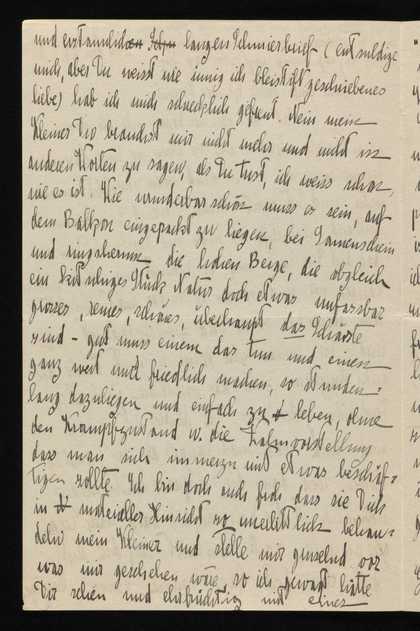 und erstaunlichen langen Schmierbrief (entschuldige
mich, aber Du weisst wie innig ich bleistiftgeschriebenes
liebe) hab ich mich schrecklich gefreut. Nein mein
Kleines Du brauchst mir nicht mehr und nicht in
anderen Worten zu sagen, als Du tust, ich weiss schon,
wie es ist. Wie wunderbar schön muss es sein, auf
dem Balkon eingepackt zu liegen, bei Sonnenschein
und ringsherum die hohen Berge, die obgleich
ein kitschiges Stück Natur doch etwas unfassbar
grosses, reines, schönes, überhaupt das Schönste
sind - gut muss einem das tun und einen
ganz weit und friedlich machen, so stunden-
lang dazuliegen und einfach zu leben, ohne
den Krampfzustand u. die Wahnvorstellung
dass man sich immerzu mit etwas beschäf-
tigen sollte. Ich bin doch auch froh dass sie Dich
in materieller Hinsicht so unerbittlich behan-
deln mein Kleiner und stelle mir grusелnd vor
was mir geschehen wäre, so ich gewagt hätte
Dir schon und ehrfürchtig mit einer